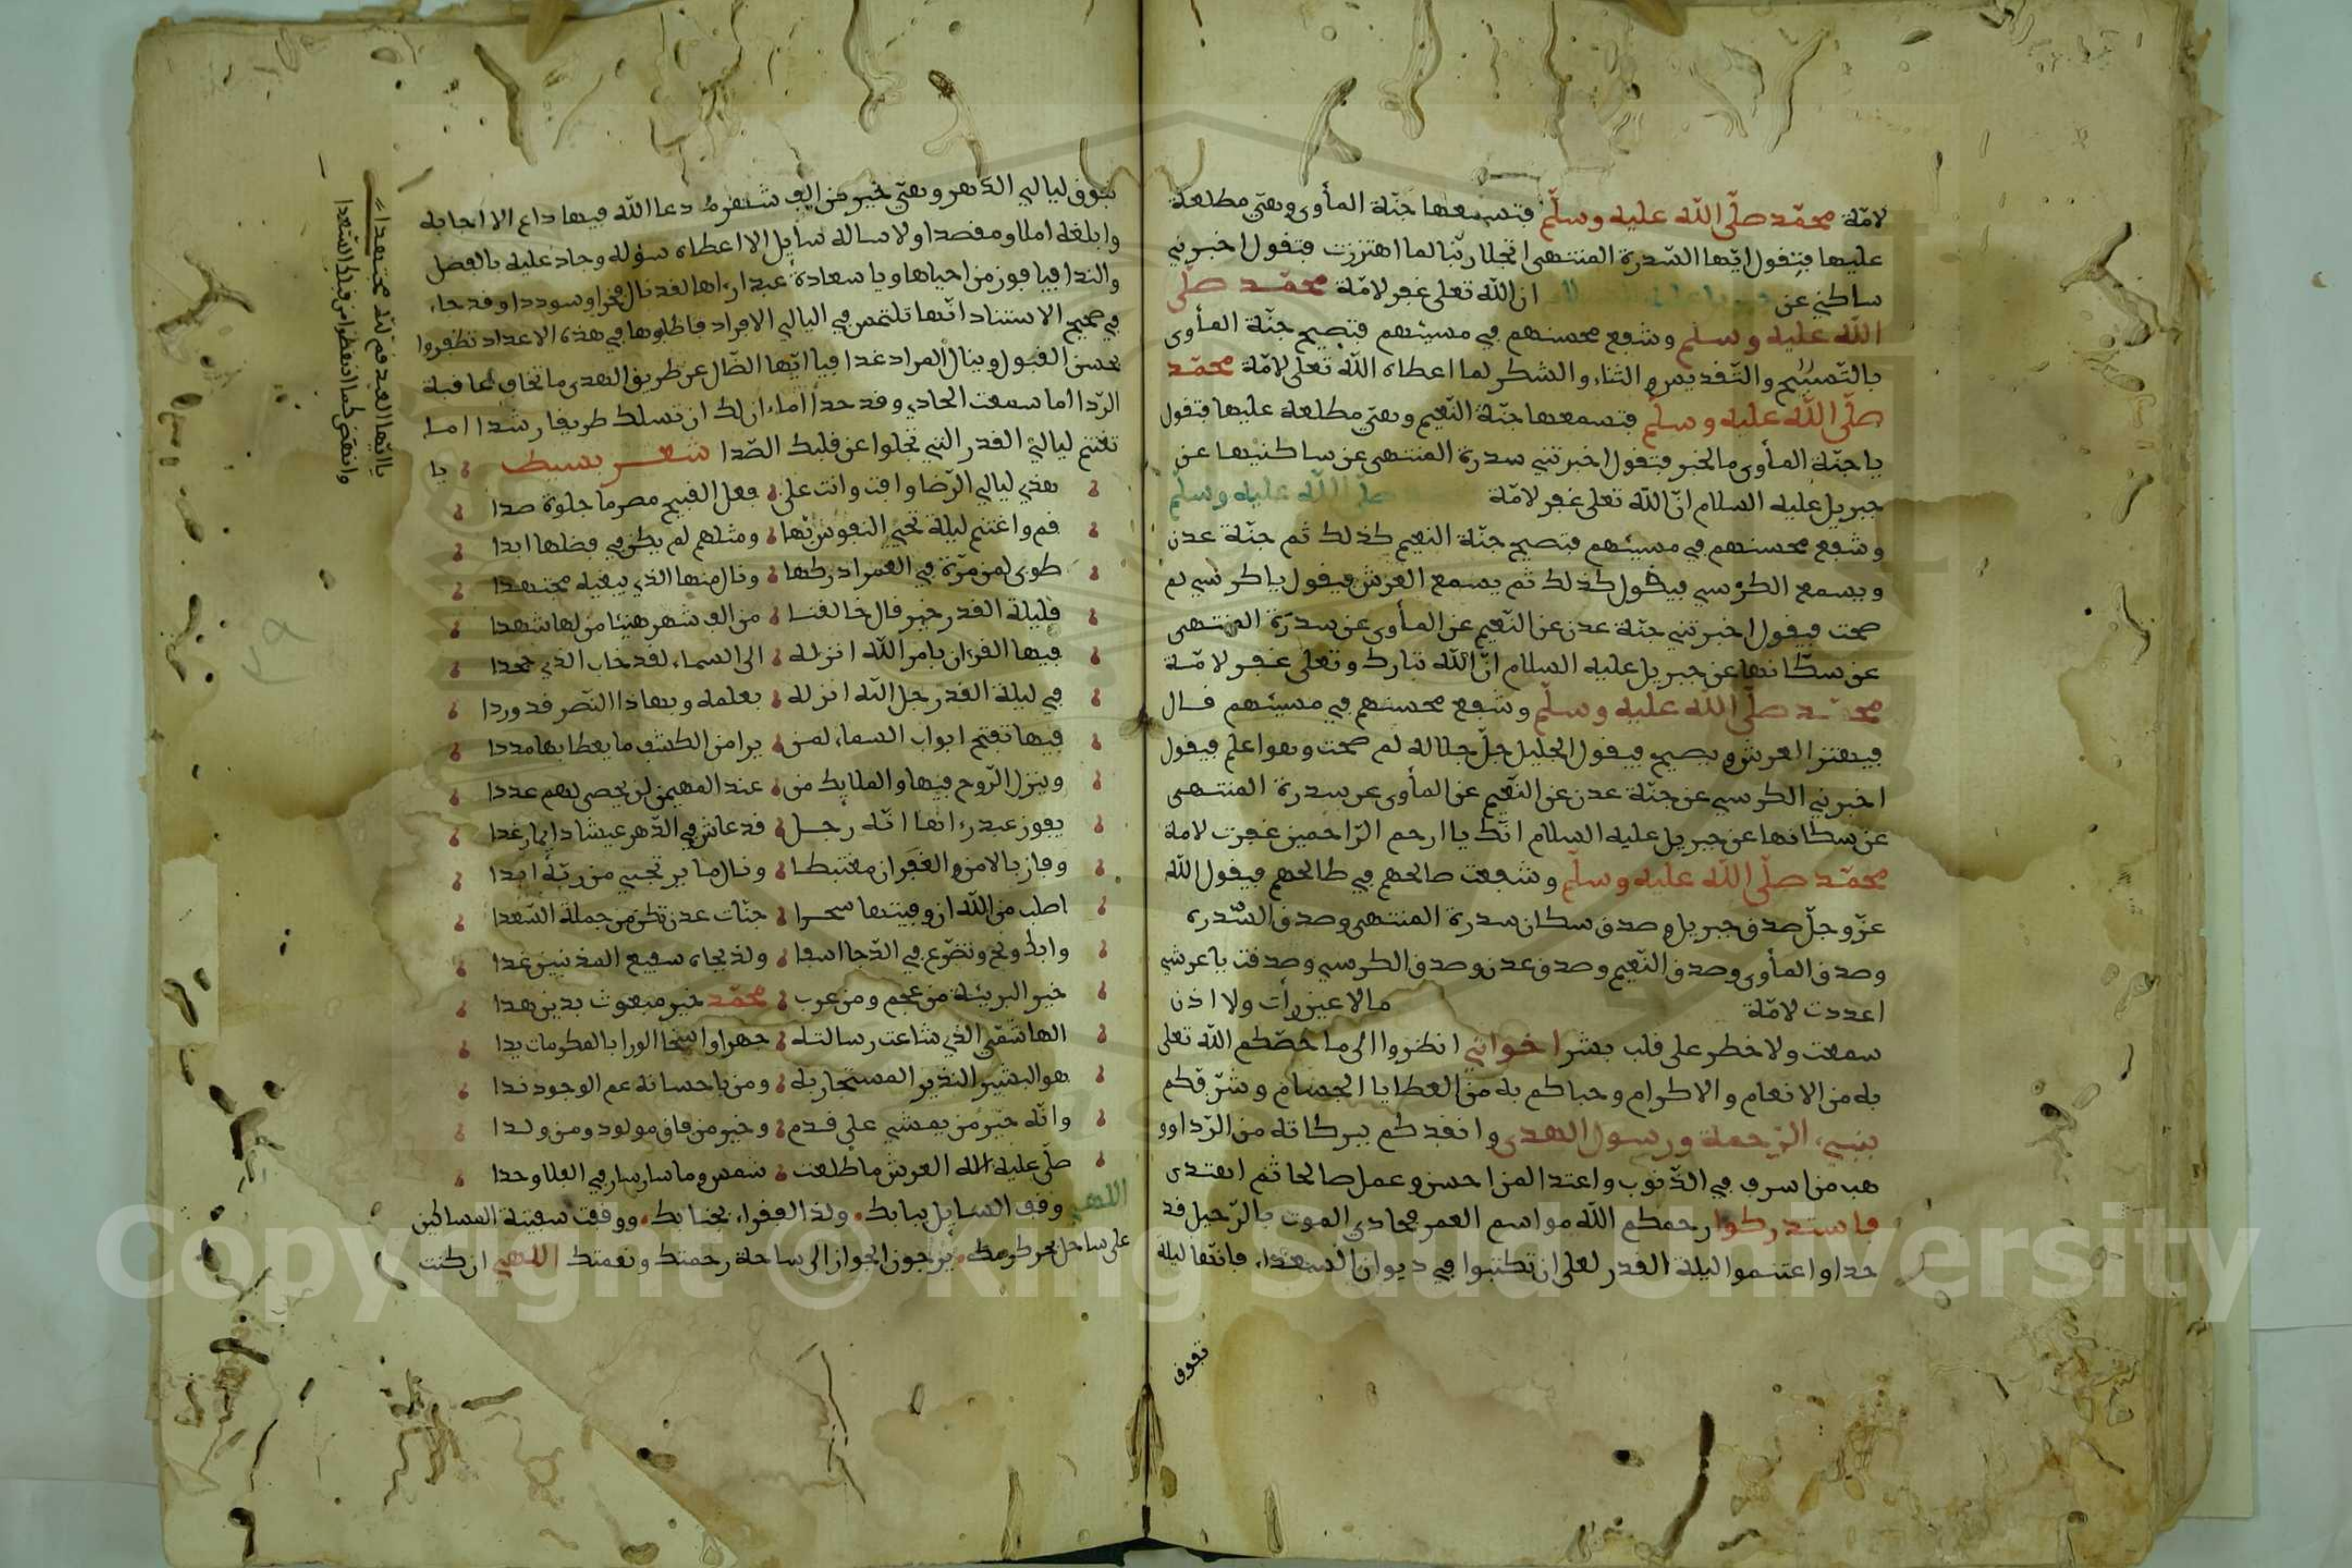 لامّة محمّد صلّى اللّه عليه وسلّم فتسمعها جنّة المأوى وهي مطلعة
عليها فتقول ايّها السّدرة المنتهى اتجلا ربّنا لما اهتززت فتقول اخبرني
ساكني عن ان اللّه تعلى غفر لامّة محمّد صلّى
اللّه عليه وسلم وشفع محسنهم في مسيئهم فتصيح جنّة المأوى
بالتّسبيح والتّقديس والثناء والشكر لما اعطاه اللّه تعلى لامّة محمّد
صلّى اللّه عليه وسلّم فتسمعها جنّة النّعيم وهي مطلعة عليها فتقول
يا جنّة المأوى ما الخبر فتقول اخبرتني سدرة المنتهى عن ساكنيها عن
جبريل عليه السلام انّ اللّه تعلى غفر لامّة صلّى اللّه عليه وسلّم
وشفع محسنهم في مسيئهم فتصيح جنّة النعيم كذلك ثم جنّة عدن
ويسمع الكرسي فيقول كذلك ثم يسمع العرش فيقول يا كرسي لم
صحت فيقول اخبرتني جنّة عدن عن النّعيم عن المأوى عن سدرة المنتهى
عن سكّانها عن جبريل عليه السلام انّ اللّه تبارك وتعلى غفر لامّة
محمّد صلّى اللّه عليه وسلّم وشفع محسنهم في مسيئهم قال
فيهتز العرش ويصيح فيقول الجليل جلّ جلاله لم صحت وهو اعلم فيقول
اخبرني الكرسي عن جنّة عدن عن النّعيم عن المأوى عن سدرة المنتهى
عن سكانها عن جبريل عليه السلام انّك يا ارحم الرّاحمين غفرت لامة
محمّد صلّى اللّه عليه وسلّم وشفعت صالحهم في طالحهم فيقول اللّه
عزّ وجلّ صدق جبريل وصدق سكان سدرة المنتهى وصدق السّدرة
وصدق المأوى وصدق النّعيم وصدق عدن وصدق الكرسي وصدقت يا عرشي
اعددت لامّة ما لا عين رأت ولا اذن
سمعت ولا خطر على قلب بشر اخواني انظروا الى ما خصّكم اللّه تعلى
به من الانعام والاكرام وحباكم به من العطايا الجسام وشرّفكم
بنبيّ الرّحمة ورسول الهدى وانقذكم ببركاته من الرّدا وو
هب من اسرف في الذّنوب واعتدا لمن احسن وعمل صالحا ثم اهتدى
فاستدركوا رحمكم اللّه مواسم العمر فحادي الموت بالرّحيل قد
حدا واغتنموا ليلة القدر لعلى ان تكتبوا في ديوان السعداء فانّها ليلة
تفوق
تفوق ليالي الدّهر وهي خير من الف شهر ما دعا اللّه فيها داع الا اجابه
وابلغه املا ومقصدا ولا ساله سايل الا اعطاه سؤله وجاد عليه بالفضل
والندا فيا فوز من احياها ويا سعادة عبد راها لقد نال فخرا وسوددا وقد جاء
في صحيح الاستناد انّها تلتمس في اليالي الافراد فاطلبوها في هذه الاعداد تظفروا
بحسن القبول وينال المراد غدا فيا ايّها الضّال عن طريق الهدى ما تخاف عاقبة
الرّدا اما سمعت الحادي وقد حدا اما ان لك ان تسلك طريقا رشدا اما
تغتنم ليالي القدر التي تجلوا عن قلبك الصّدا شعر بسيط يا
هذي ليالي الرّضا وافت وانت على فعل القبيح مصر ما جلوة صدا
قم واغتنم ليلة تحيي النفوس بها ومثلهم لم يكن في فضلها ابدا
طوبى لمن مرّة في العمر ادركها ونال منها الذي يبغيه مجتهدا
فليلة القدر خير قال خالقنا من الف شهر هنيئا من لها شهدا
فيها القرءان بامر اللّه انزله الى السماء لقد خاب الذي جحدا
في ليلة القدر جل اللّه انزله بعلمه وبهاذا النّصر قد وردا
فيها تفتح ابواب السماء لمن يرا من الكشف ما يعطا بها مددا
وينزل الرّوح فيها والملايك من عند المهيمن لن يحصى لهم عددا
يفوز عبد رءاها انّه رجل قد عاش في الدّهر عيشا دايما رغدا
وفاز بالامن والغفران مغتبطا ونال ما يرتجي من ربّه ابدا
اطلب من اللّه ان وفيتها سحرا جنّات عدن تكن من جملة السّعدا
وابك ونح وتضرّع في الدّجا اسفا ولذ بجاه شفيع المذنبين غدا
خير البريئة من عجم ومن عرب محمّد خير مبعوث بدين هدا
الهاشميّ الذي شاعت رسالته جهرا واضحا الورا بالمكرمات يدا
هو البشير النذير المستجار به ومن باحسانه عم الوجود ندا
وانّه خير من يمشي على قدم وخير من فاق مولود ومن ولدا
صلّى عليه اله العرش ما طلعت شمس وما سار سار في الفلا وحدا
اللهي وقف السايل ببابك ولذ الفقراء بجنابك ووقفت سفينة المساكين
على ساحل بحر كرمك يرجون الجواز الى ساحة رحمتك ونعمتك اللهي ان كنت
يا ايّها العبد قم للّه مجتهدا
وانهض كما انهظرا من قبلك السّعدا